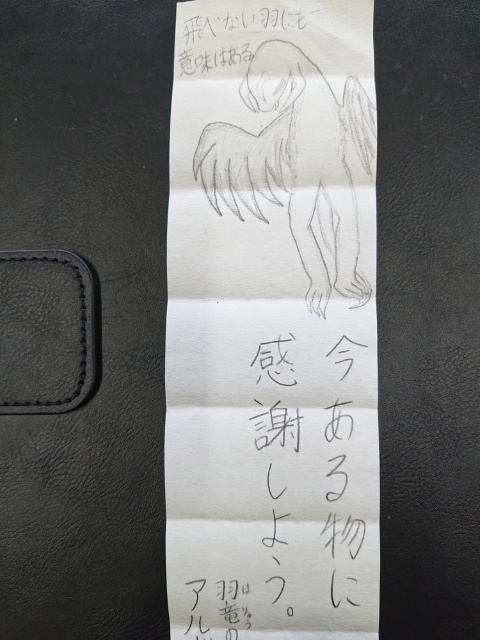 飛べない羽にも
意味はある
今ある物に
感謝しよう。
はりゅう
羽竜の
アル